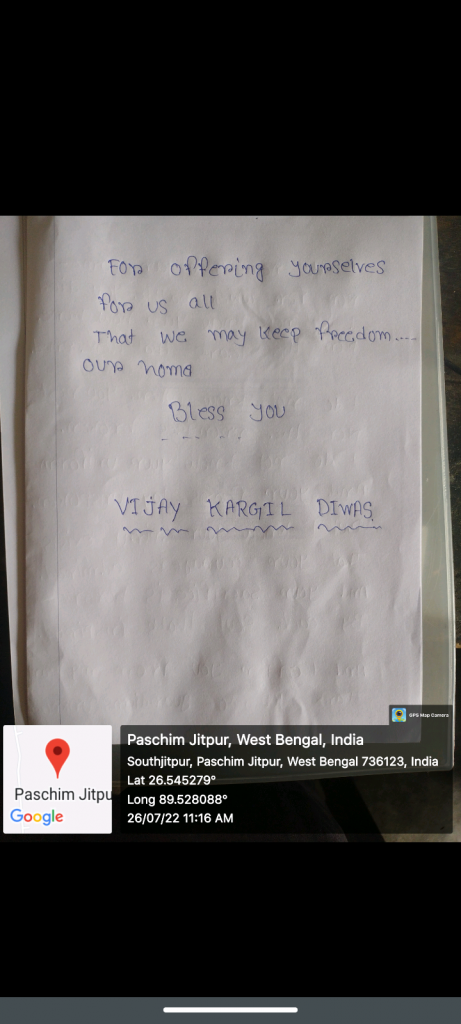 For offering yourselves
for us all
That we may keep freedom....
our home
Bless you
VIJAY KARGIL DIWAS
GPS Map Camera
Paschim Jitpur, West Bengal, India
Southjitpur, Paschim Jitpur, West Bengal 736123, India
Lat 26.545279°
Long 89.528088°
26/07/22 11:16 AM
Paschim Jitpu
Google